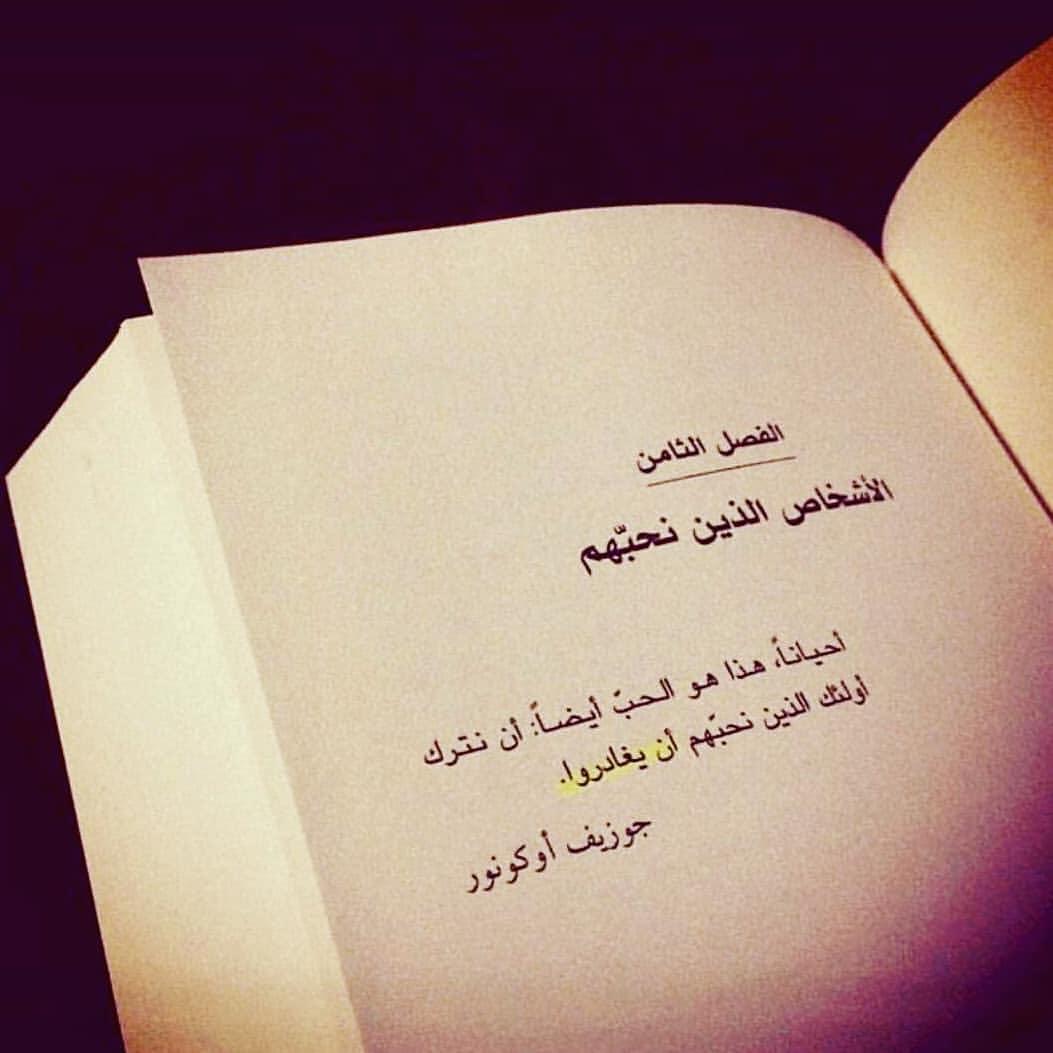 الفصل الثامن
الأشخاص الذين نحبّهم
أحياناً، هذا هو الحبّ أيضاً: أن نترك
أولئك الذين نحبّهم أن يغادروا.
جوزيف أوكونور